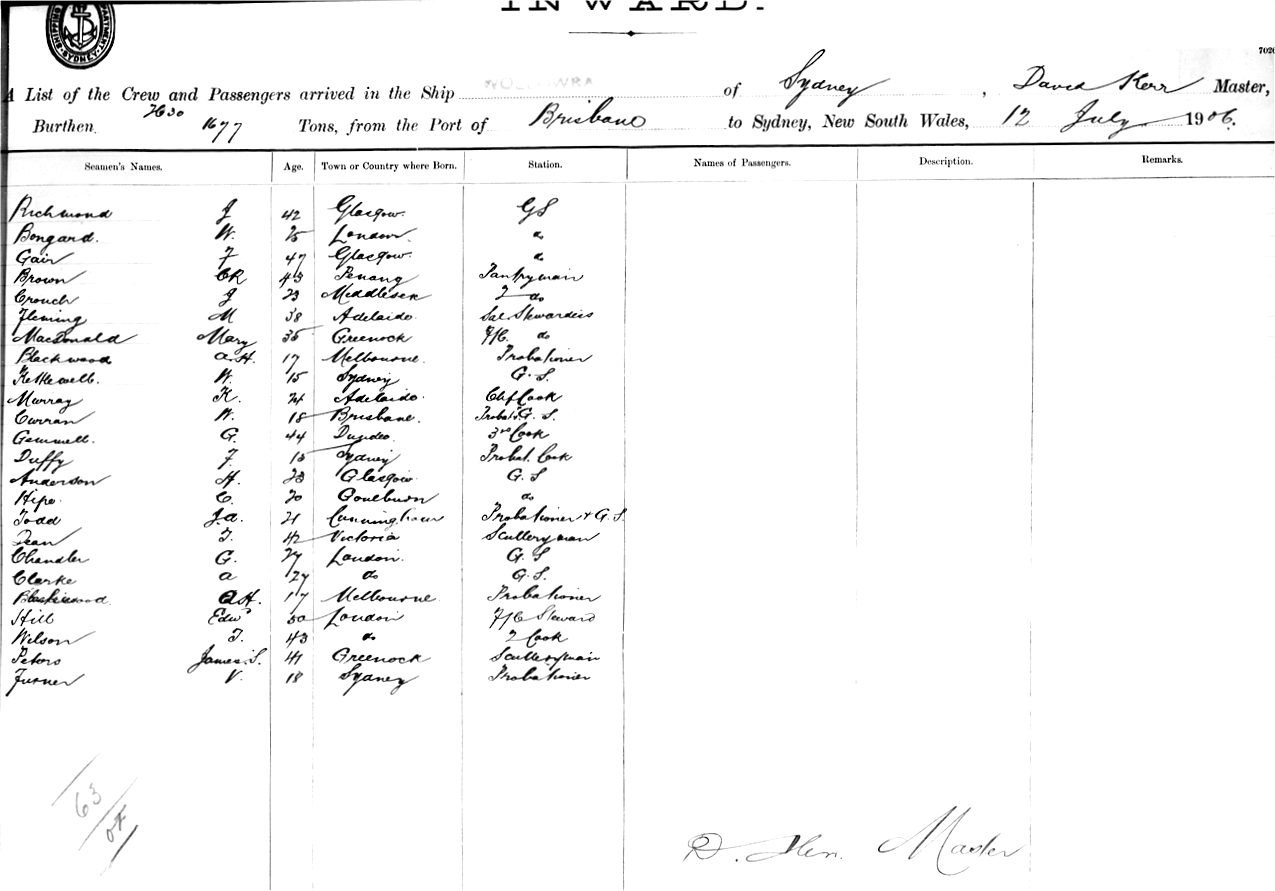 INWARD.
SHIPPING DEPARTMENT SYDNEY
A List of the Crew and Passengers arrived in the Ship WOLLOWRA of Sydney, David Kerr Master,
Burthen 1677 Tons, from the Port of Brisbane to Sydney, New South Wales, 12 July 1906.
Seamen's Names. Age. Town or Country where Born. Station. Names of Passengers. Description. Remarks.
Richmond J 42 Glasgow. GS
Bongard. W. 25 London. do
Gair F 47 Glasgow. do
Brown CR 43 Penang Pantryman
Crouch J 23 Middlesex 2 do
Fleming M 38 Adelaide. Sal Stewardess
MacDonald Mary 35 Greenock F/C. do
Blackwood A.H. 17 Melbourne. Probationer
Kettlewell. W. 15 Sydney G.S.
Murray K. 24 Adelaide. Chf Cook
Curran W. 18 Brisbane. Probat & G.S.
Gemmell. G. 44 Dundee. 3rd Cook
Duffy F. Sydney Probat. Cook
Anderson H. 23 Glasgow G.S
Hipe. C. 20 Goulburn do
Todd J.A. 21 Cunningham Probationer & G.S.
Dean T. 42 Victoria Sculleryman
Chandler G. 27 London. G.S
Clarke A 27 do G.S.
Blackwood A.H. 17 Melbourne. Probationer
Hill Edwd 50 London F/C Steward
Wilson T. 43 do 2 Cook
Peters James S. 41 Greenock Sculleryman
Turner V. 18 Sydney Probationer
63
D. Kerr. Master